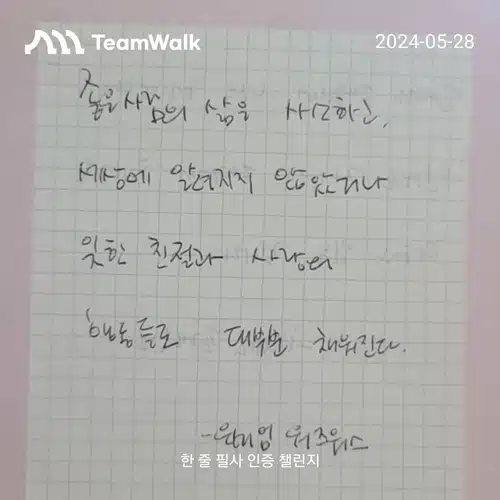 TeamWalk
2024-05-28
좋은사람의 삶은 사소하고,
세상에 알려지지 않았거나
잊힌 친절과 사랑의
행동들로 대부분 채워진다.
-윌리엄 워즈워스
한 줄 필사 인증 챌린지